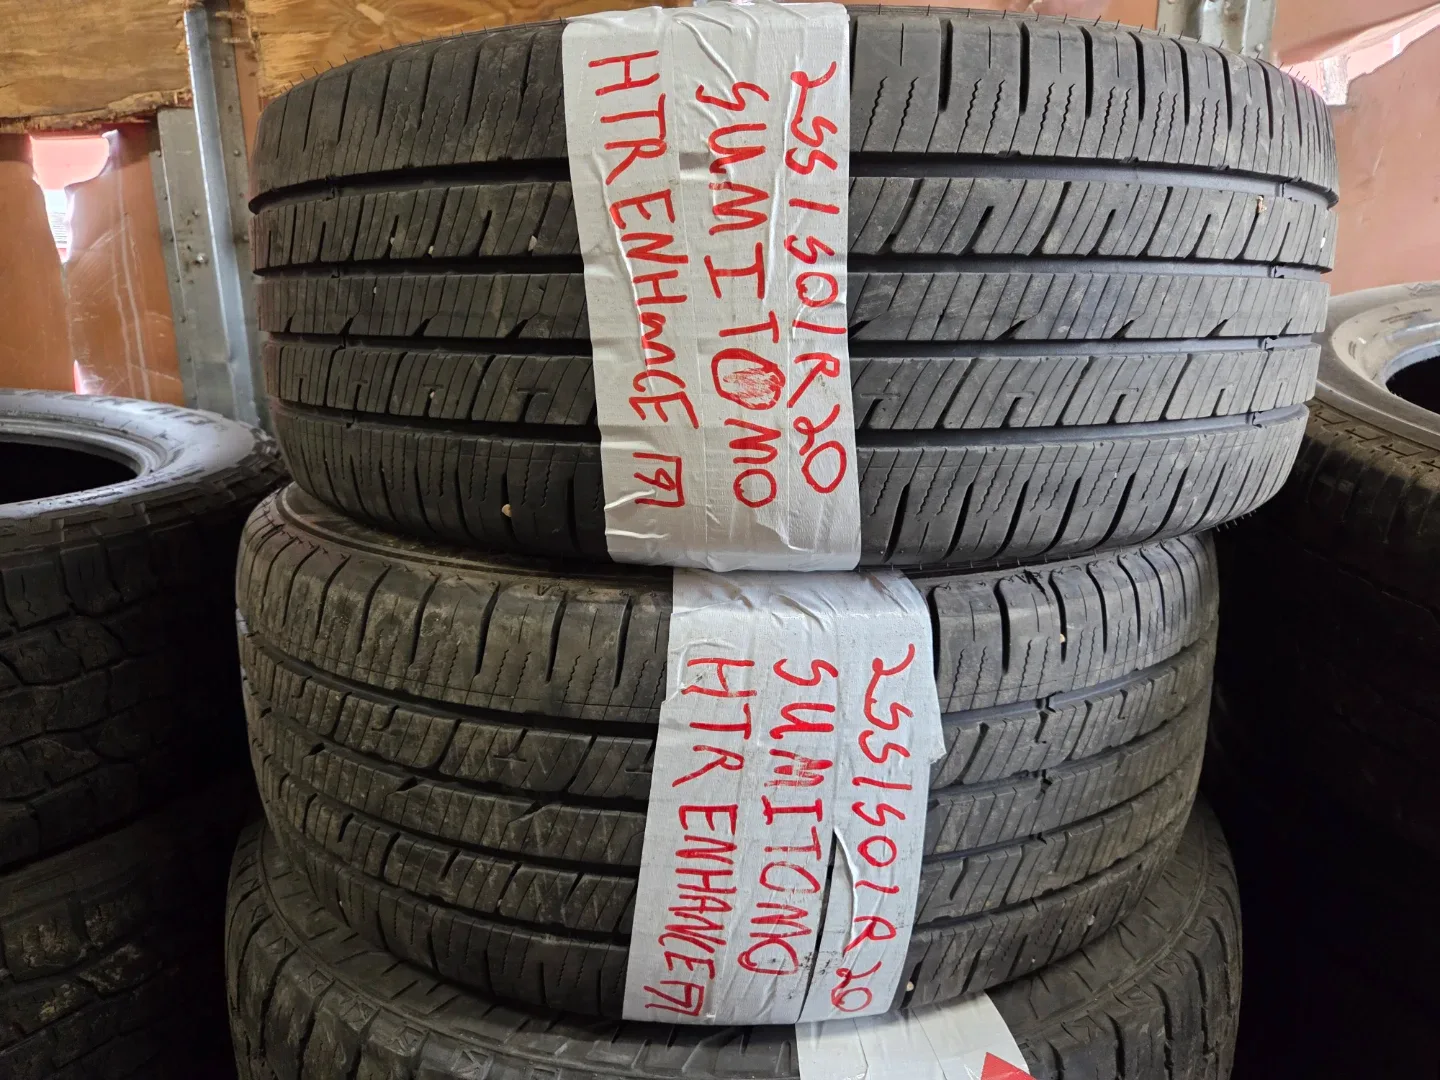 255/50/R20
SUMITOMO
HTR ENHANCE
255/50/R20
SUMITOMO
HTR ENHANCE